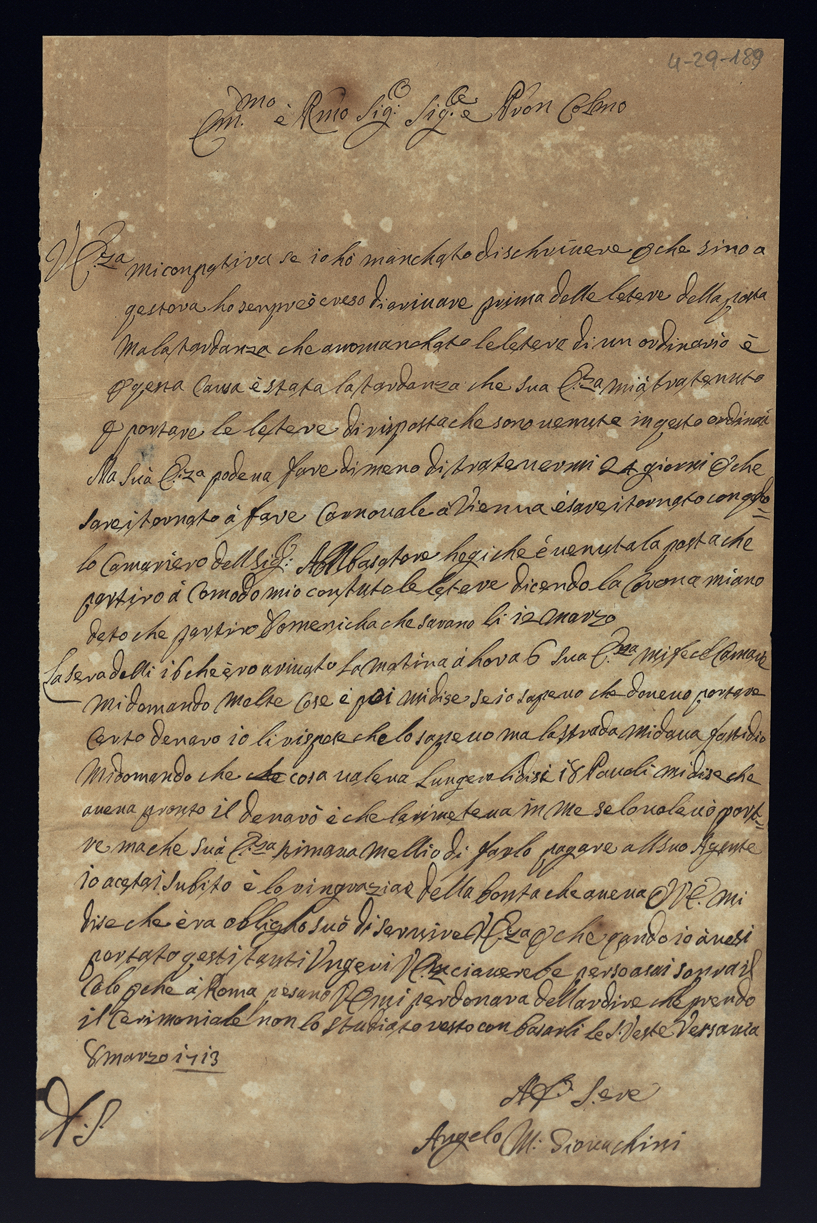 4-29-189
Em.mo è Rmo Sig: Sig.e è Pron Colmo
V Eza mi conpatira se io hò manchato di schrivere pche sino a
qestora ho senpre creso di arivare prima delle letere della posta
Ma la tardanza che anno manchato le letere di un ordinario è
p qesta Causa è stata la tardanza che sua Eza mi à tratenuto
p portare le letere di risposta che sono venute in qesto ordina
Ma suà Eza podeva fare di meno di tratenermi 24 giorni pche
sarei tornato à fare Carnouale à Vienna è sarei tornato con qel=
lo Camariero dell Sig: Abbasatore hogi che è venuta la posta che
partirò à Comodo mio con tute le letere dicendo la Corona mi ano
deto che partirò Domenicha che sarano li 12 marzo
La sera delli 16 che èro arivato la matina à hora 6 sua Eza mi fece Camare
Mi domando Molte Cose è poi mi dise se io sapevo che dovevo portare
Certo denaro io li rispose che lo sapevo ma la strada mi dava fastidio
Mi domando che cosa valeva Lungero li disi 18 Pauoli mi dise che
aueva pronto il denarò è che la rimeteva in me se lo voleuo port=
re ma che suà Eza stimava Mellio di farlo pagare all suo Agente
io acetai subito è lo ringraziai della bonta che aueva p V E. mi
dise che èra obligho suò di servire V Eza p che qando io àvesi
portato qesti tanti Vngeri V Eza ci auerebe perso asai sopra il
Calo pche à Roma pesano V E mi perdonara dell ardire che prendo
il Cerimoniale non lo studiato resto con basarli le S. Veste Versavia
8 marzo 1713
D. S.
Angelo M: Giovachini